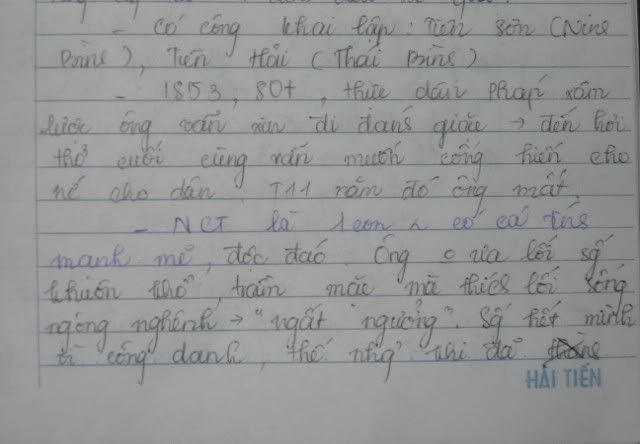 - có công khai lập: Tiền Sơn (Ninh
Bình), Tiền Hải (Thái Bình)
- 1853, 80t, thực dân Pháp xâm
lược ông vẫn xin đi đánh giặc → đến hơi
thở cuối cùng vẫn muốn cống hiến cho
cho dân. T11 năm đó ông mất.
- NCT là 1 con có cá tính
mạnh mẽ, độc đáo. Ông o ưa lối số
khuôn khổ, trầm mặc mà thích lối sống
ngông nghênh → "ngất ngưởng". Số hết mình
vì công danh, thế nhg khi đã
HẢI TIẾN